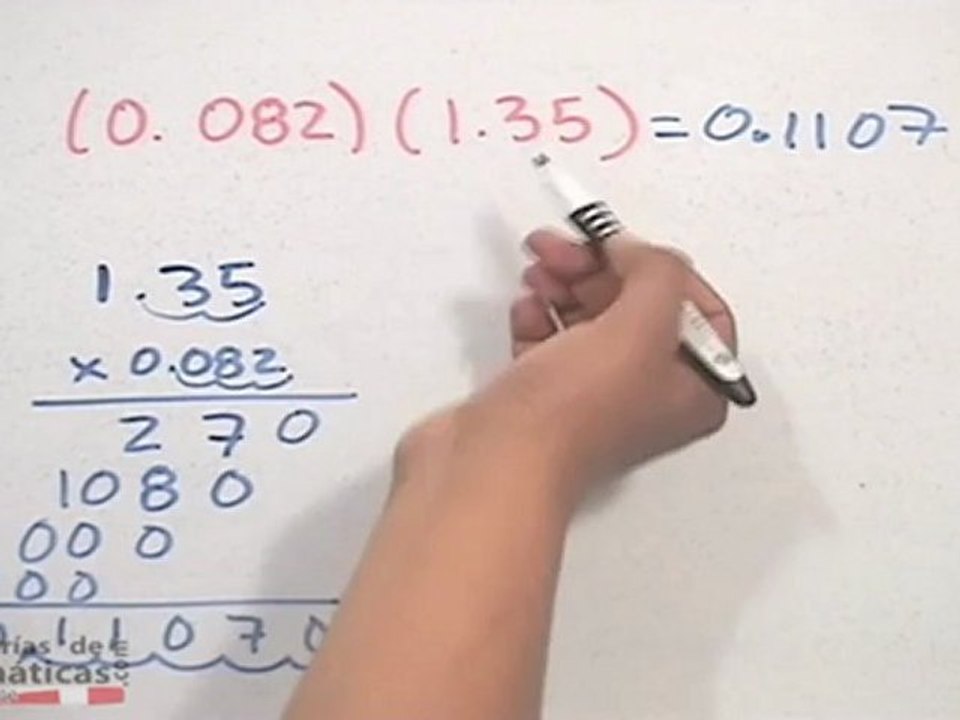 (0.082)(1.35)=0.1107
1.35
x 0.082
2 7 0
1 0 8 0
0 0 0
0 0
1 1 0 7 0
rías de
máticas